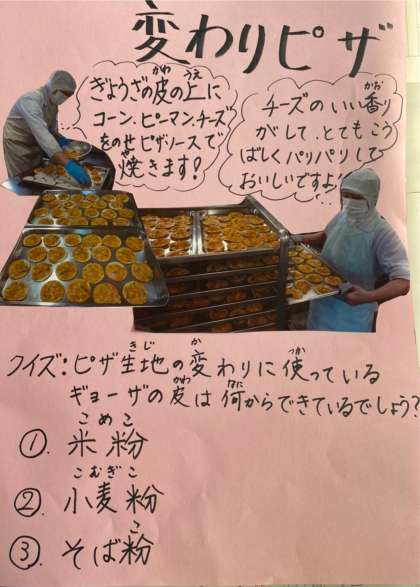 変わりピザ
ぎょうざの皮の上に
かわ うえ
コーン、ピーマン、チーズ
をのせピザソースで
焼きます!
や
チーズのいい香り
かお
がして、とてもこう
ばしくパリパリして
おいしいですよ!
クイズ:ピザ生地の変わりに使っている
きじ か つか
ギョーザの皮は何からできているでしょう?
かわ なに
①.米粉
こめこ
②.小麦粉
こむぎこ
③.そば粉
こ